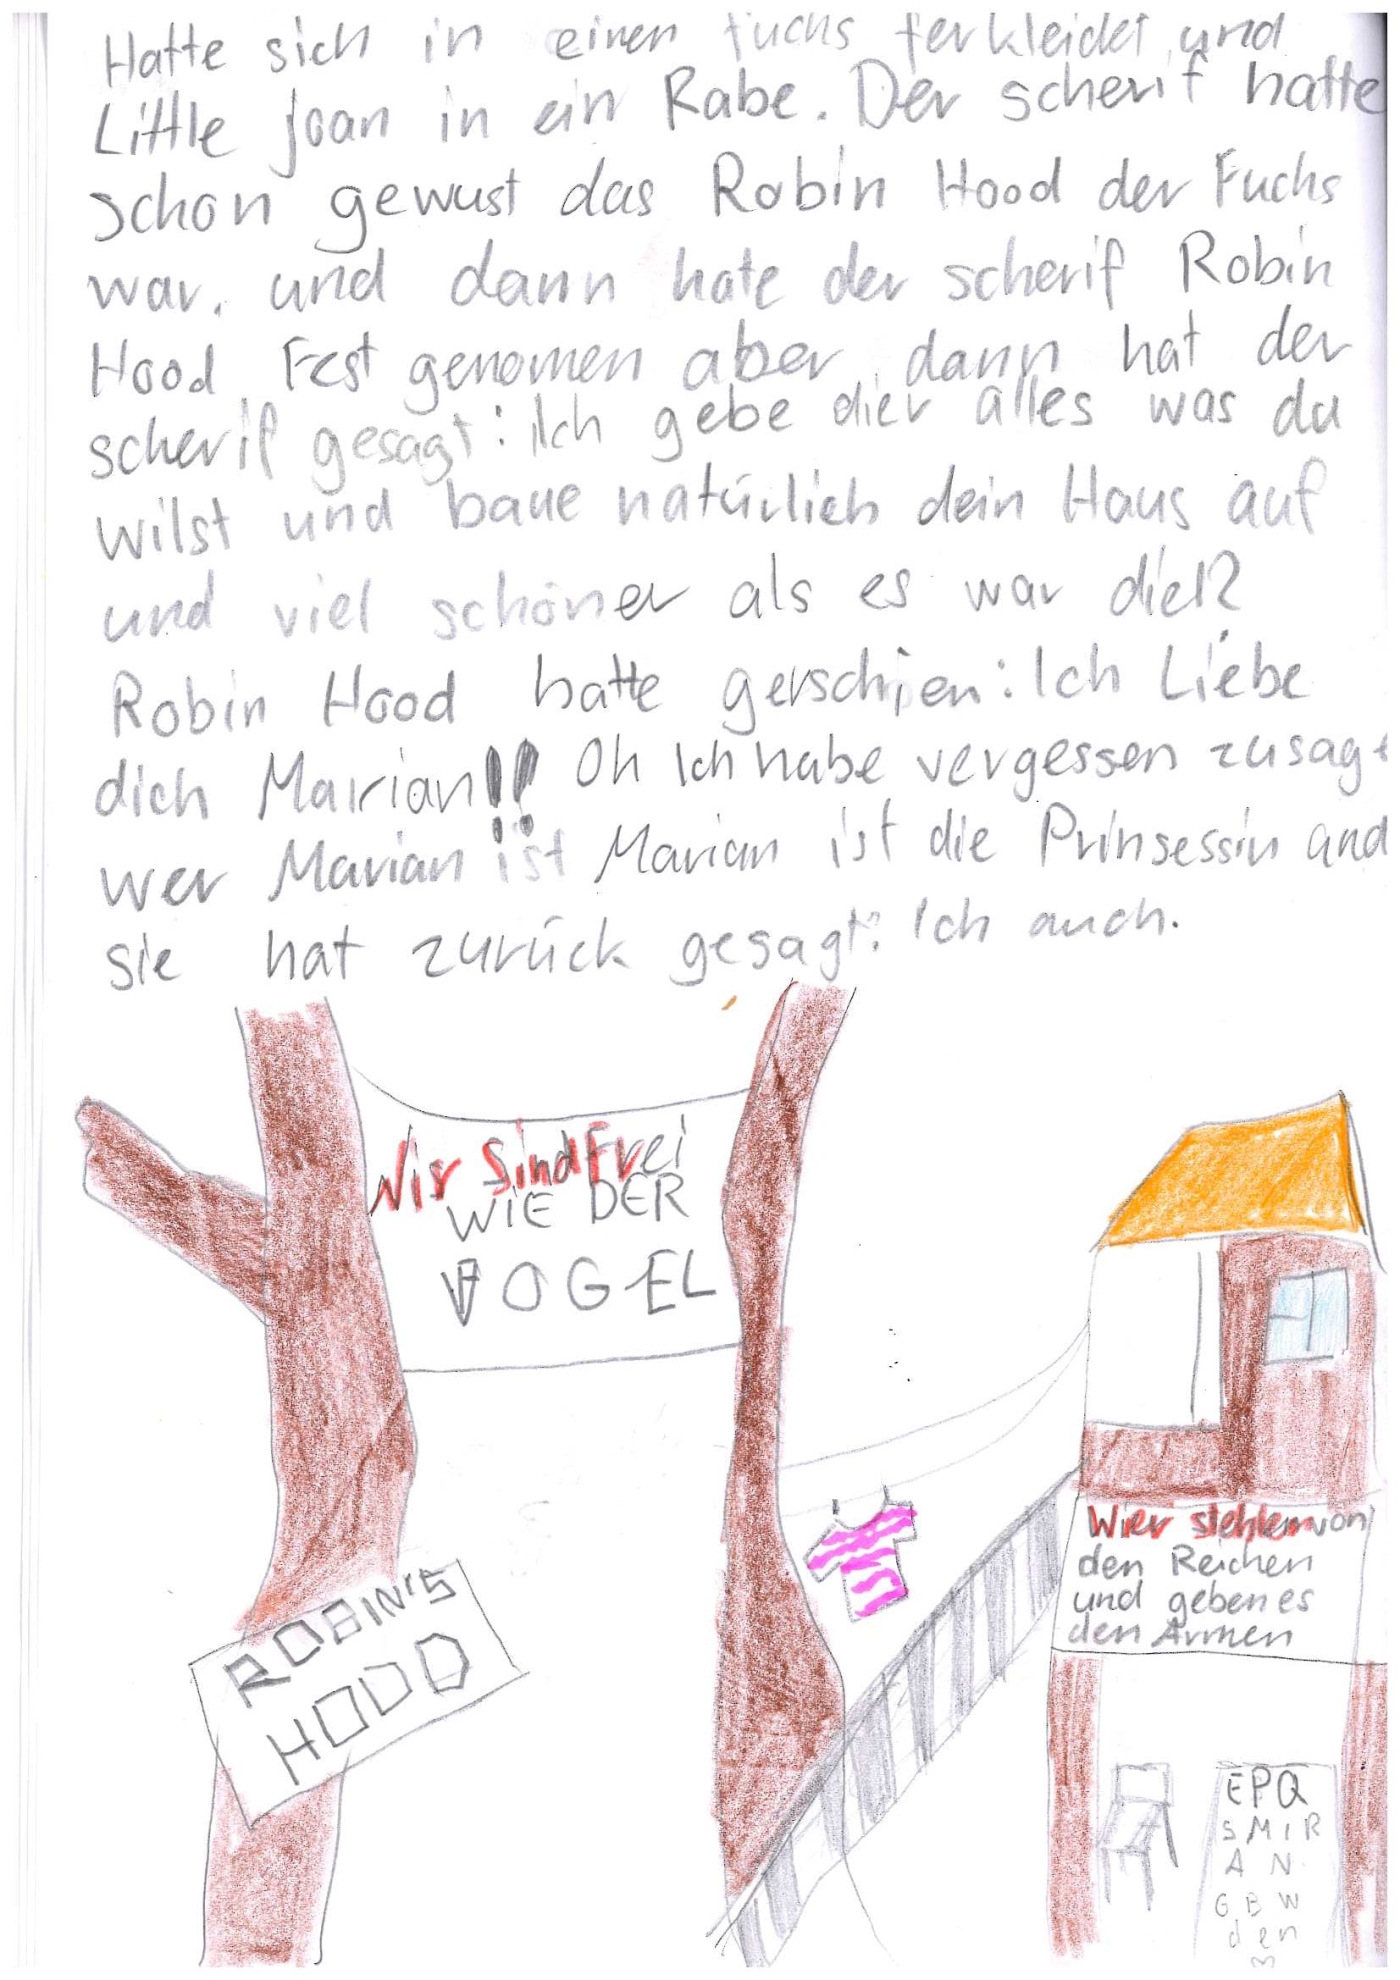 Hatte sich in einen fuchs ferkleidet und
Little joan in ein Rabe. Der scherif hatte
schon gewust das Robin Hood der Fuchs
war. und dann hate der scherif Robin
Hood Fest genomen aber dann hat der
scherif gesagt: Ich gebe dier alles was du
wilst und baue natürlich dein Haus auf
und viel schöner als es war
Robin Hood hatte gerschrien: Ich Liebe
dich Marian!! Oh Ich habe vergessen zusagt
wer Marian ist Marian ist die Prinsessin und
sie hat zurück gesagt: Ich auch.
Wir Sind Frei
WIE DER
VOGEL
ROBIN'S
HOOD
Wier stehlen von
den Reichen
und geben es
den Armen
EPQ
SMIR
A N
G B W
den